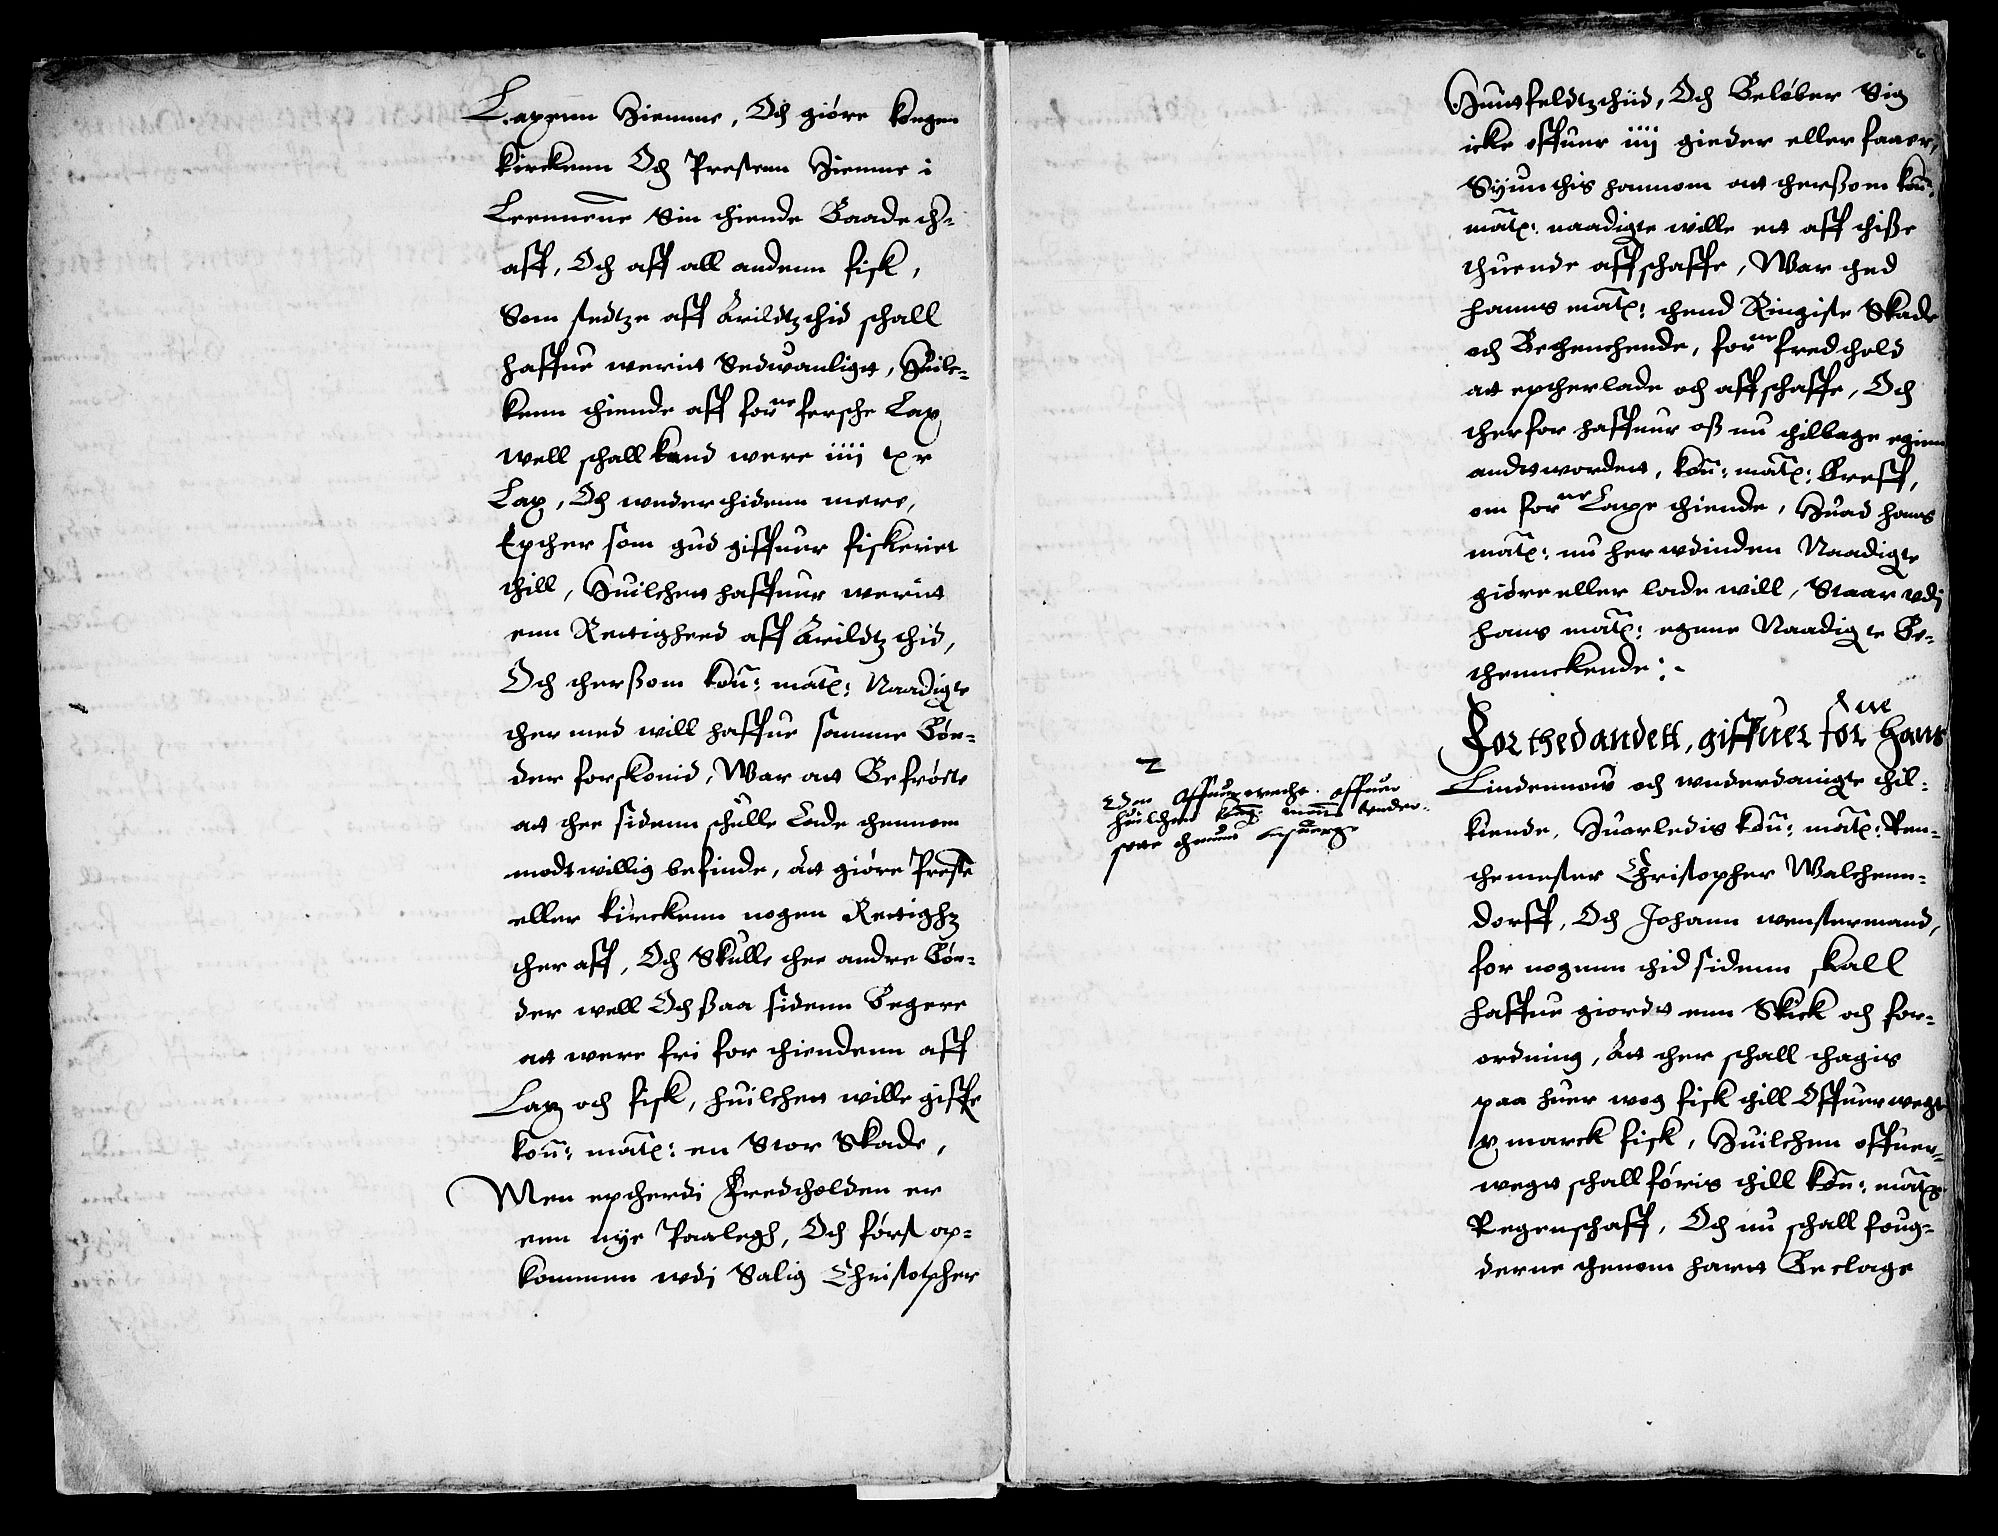 Laxenn Hiemme, Och giöre kongen
kircken Och Prestenn Hiemme i
Leenne Sin thiende Baade ther-
aff, Och aff all andenn fisk,
Som stedtze aff Arildtz thid schall
haffue werit Sedwanligt, Huil-
kenn thiende aff for:ne fersche Lax
well schall kund were iiij xx
Lax, Och wnderthidenn mere,
Epther som gud giffuer fiskeriet
thill, Huilchett haffuer werit
enn Rettigheed aff Arildtz thid,
Och thersom kon: matz: Naadigte
ther med will haffue samme Bön-
der forskonid, War att Befröcte
att the sidenn skulle Lade thennom
modtwillig befinde, Att giöre Preste
eller kirckenn nogen Rettighed
ther aff, Och Skulle the andre Bön-
der well Och saa sidenn Begere
att were fri for thiendenn aff
Lax och fisk, huilchett wille giffe
kon: matz: en Stor Skade,
Men eptherdi Fredtholden er
enn nye Paalegh, Och först op-
kommen wdj Salig Christopher
Huitfeldtz thiid, Och Belöber Sig
icke offuer iiij gieder eller faaer,
Syunthis hannom att thersom kon:
matz: naadigte wille ett aff thisse
thuende affschaffe, War thed
hanns matz: thend Ringiste Skade
och Bethenckende, for:ne fredthold
att epterlade och affschaffe, Och
therfor haffuer oss nu thilbage egienn
andtwordett, kon: matz: Breff,
om for:ne Laxe thiende, Huad hans
matz: nu her wdinden Naadigte
giöre eller lade will, Staar wdj
hans matz: egene Naadigte Be-
thenckende:-
For thed andett, giffuer for:ne Hans
Lindenow och wnderdanigte thil-
kiende, Huorledis kon: matz: Ren-
themester Christopher Walchenn-
dorff, Och Johann wenstermand,
for nogenn thid sidenn skall
haffue giordt enn Skick och for-
ordning, Att ther schall thagis
paa huer wog fisk thill Offuerwegt
x marck fisk, Huilchen offuer-
wegt schall föris thill kon: matz:
Regenschaff, Och nu schall foug-
derne thenom hart Beclage
2
huilchen